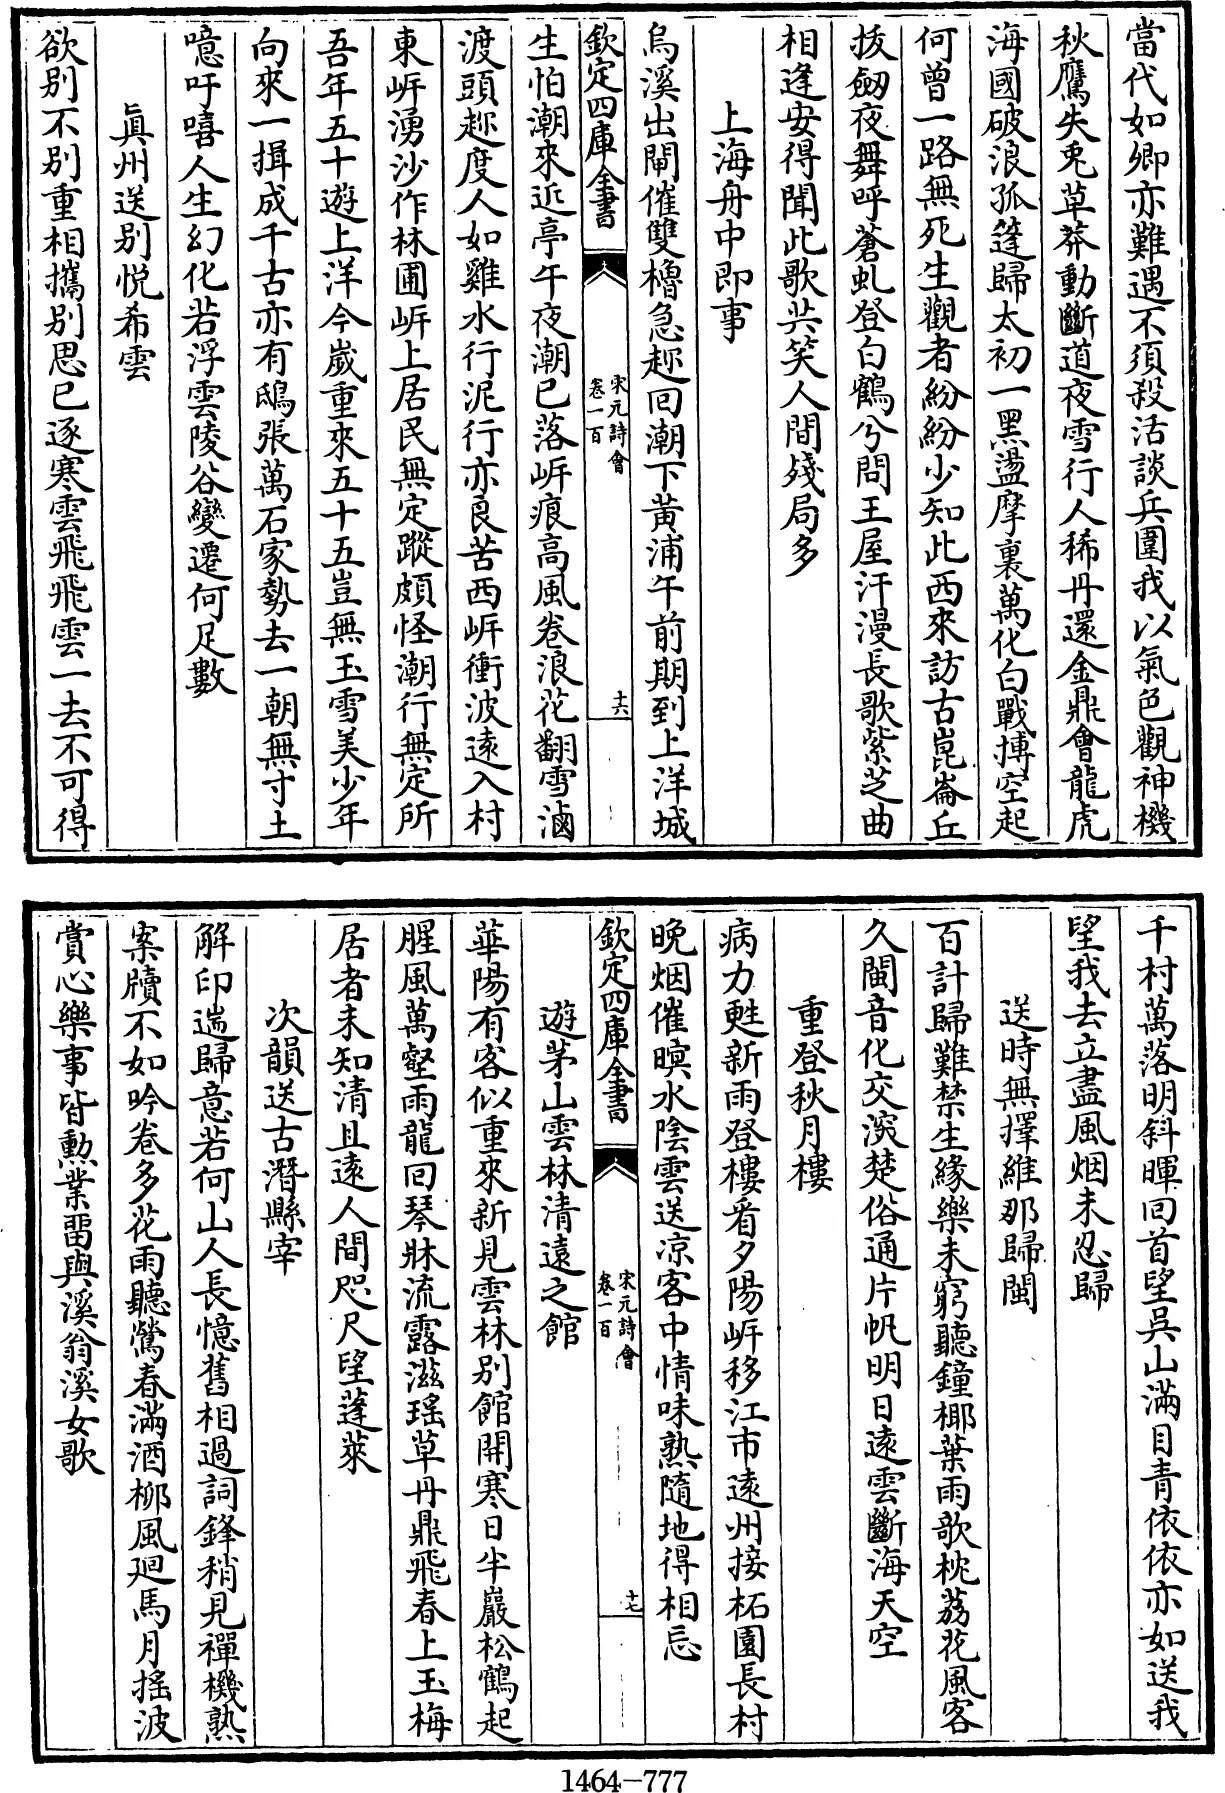 當代如卿亦難遇不須殺活談兵圍我以氣色觀神機
秋鷹失兎草莽動斷道夜雪行人稀丹還金鼎會龍虎
海國破浪孤篷歸太初一黑盪摩裏萬化白戰摶空起
何曾一路無死生觀者紛紛少知此西來訪古崑崙丘
拔劒夜舞呼蒼虬登白鶴兮問王屋汗漫長歌紫芝曲
相逢安得聞此歌共笑人間殘局多
上海舟中即事
烏溪出閘催雙櫓急趂回潮下黄浦午前期到上洋城
欽定四庫全書
宋元詩會
卷一百
十六
生怕潮來近亭午夜潮已落岍痕高風卷浪花翻雪滷
渡頭趂度人如雞水行泥行亦良苦西岍衝波遠入村
東岍湧沙作林圃岍上居民無定蹤頗怪潮行無定所
吾年五十遊上洋今嵗重來五十五豈無玉雪美少年
向來一揖成千古亦有鴟張萬石家勢去一朝無寸土
噫吁嘻人生幻化若浮雲陵谷變遷何足數
眞州送别悅希雲
欲别不别重相攜别思已逐寒雲飛飛雲一去不可得
千村萬落明斜暉回首望吳山滿目青依依亦如送我
望我去立盡風烟未忍歸
送時無擇維那歸閩
百計歸難禁生緣樂未窮聽鐘椰葉雨歌枕荔花風客
久閩音化交淡楚俗通片帆明日遠雲斷海天空
重登秋月樓
病力甦新雨登樓看夕陽岍移江市遠州接柘園長村
晚烟催暝水陰雲送凉客中情味熟隨地得相忘
欽定四庫全書
宋元詩會
卷一百
十七
遊茅山雲林清遠之館
華陽有客似重來新見雲林别館開寒日半巖松鶴起
腥風萬壑雨龍回琴牀流露滋瑤草丹鼎飛春上玉梅
居者未知清且遠人間咫尺望蓬萊
次韻送古潛縣宰
解印遄歸意若何山人長憶舊相過詞鋒稍見禪機熟
案牘不如吟卷多花雨聽鶯春滿酒栁風廻馬月搖波
賞心樂事皆勲業畱與溪翁溪女歌
1464-777